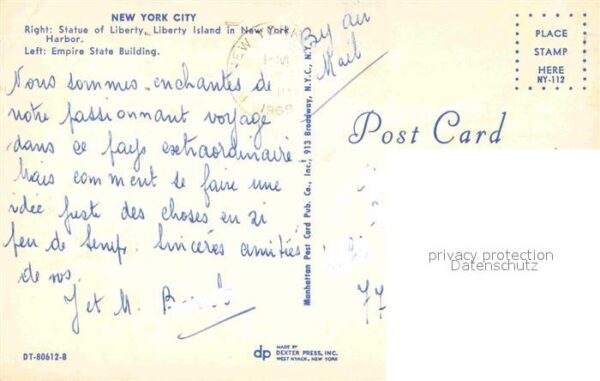 NEW YORK CITY
Right: Statue of Liberty, Liberty Island in New York Harbor.
Left: Empire State Building.
By air
Mail
PLACE
STAMP
HERE
NY-112
1969
Nous sommes enchantés de
notre passionnant voyage
dans ce pays extraordinaire
Mais comment se faire une
idée juste des choses en si
peu de temps. Sincères amitiés
de nos.
J et M.
Manhattan Post Card Pub. Co., Inc., 913 Broadway, N.Y.C., N.Y.
Post Card
privacy protection
Datenschutz
77
DT-80612-B
dp
MADE BY
DEXTER PRESS, INC.
WEST NYACK, NEW YORK